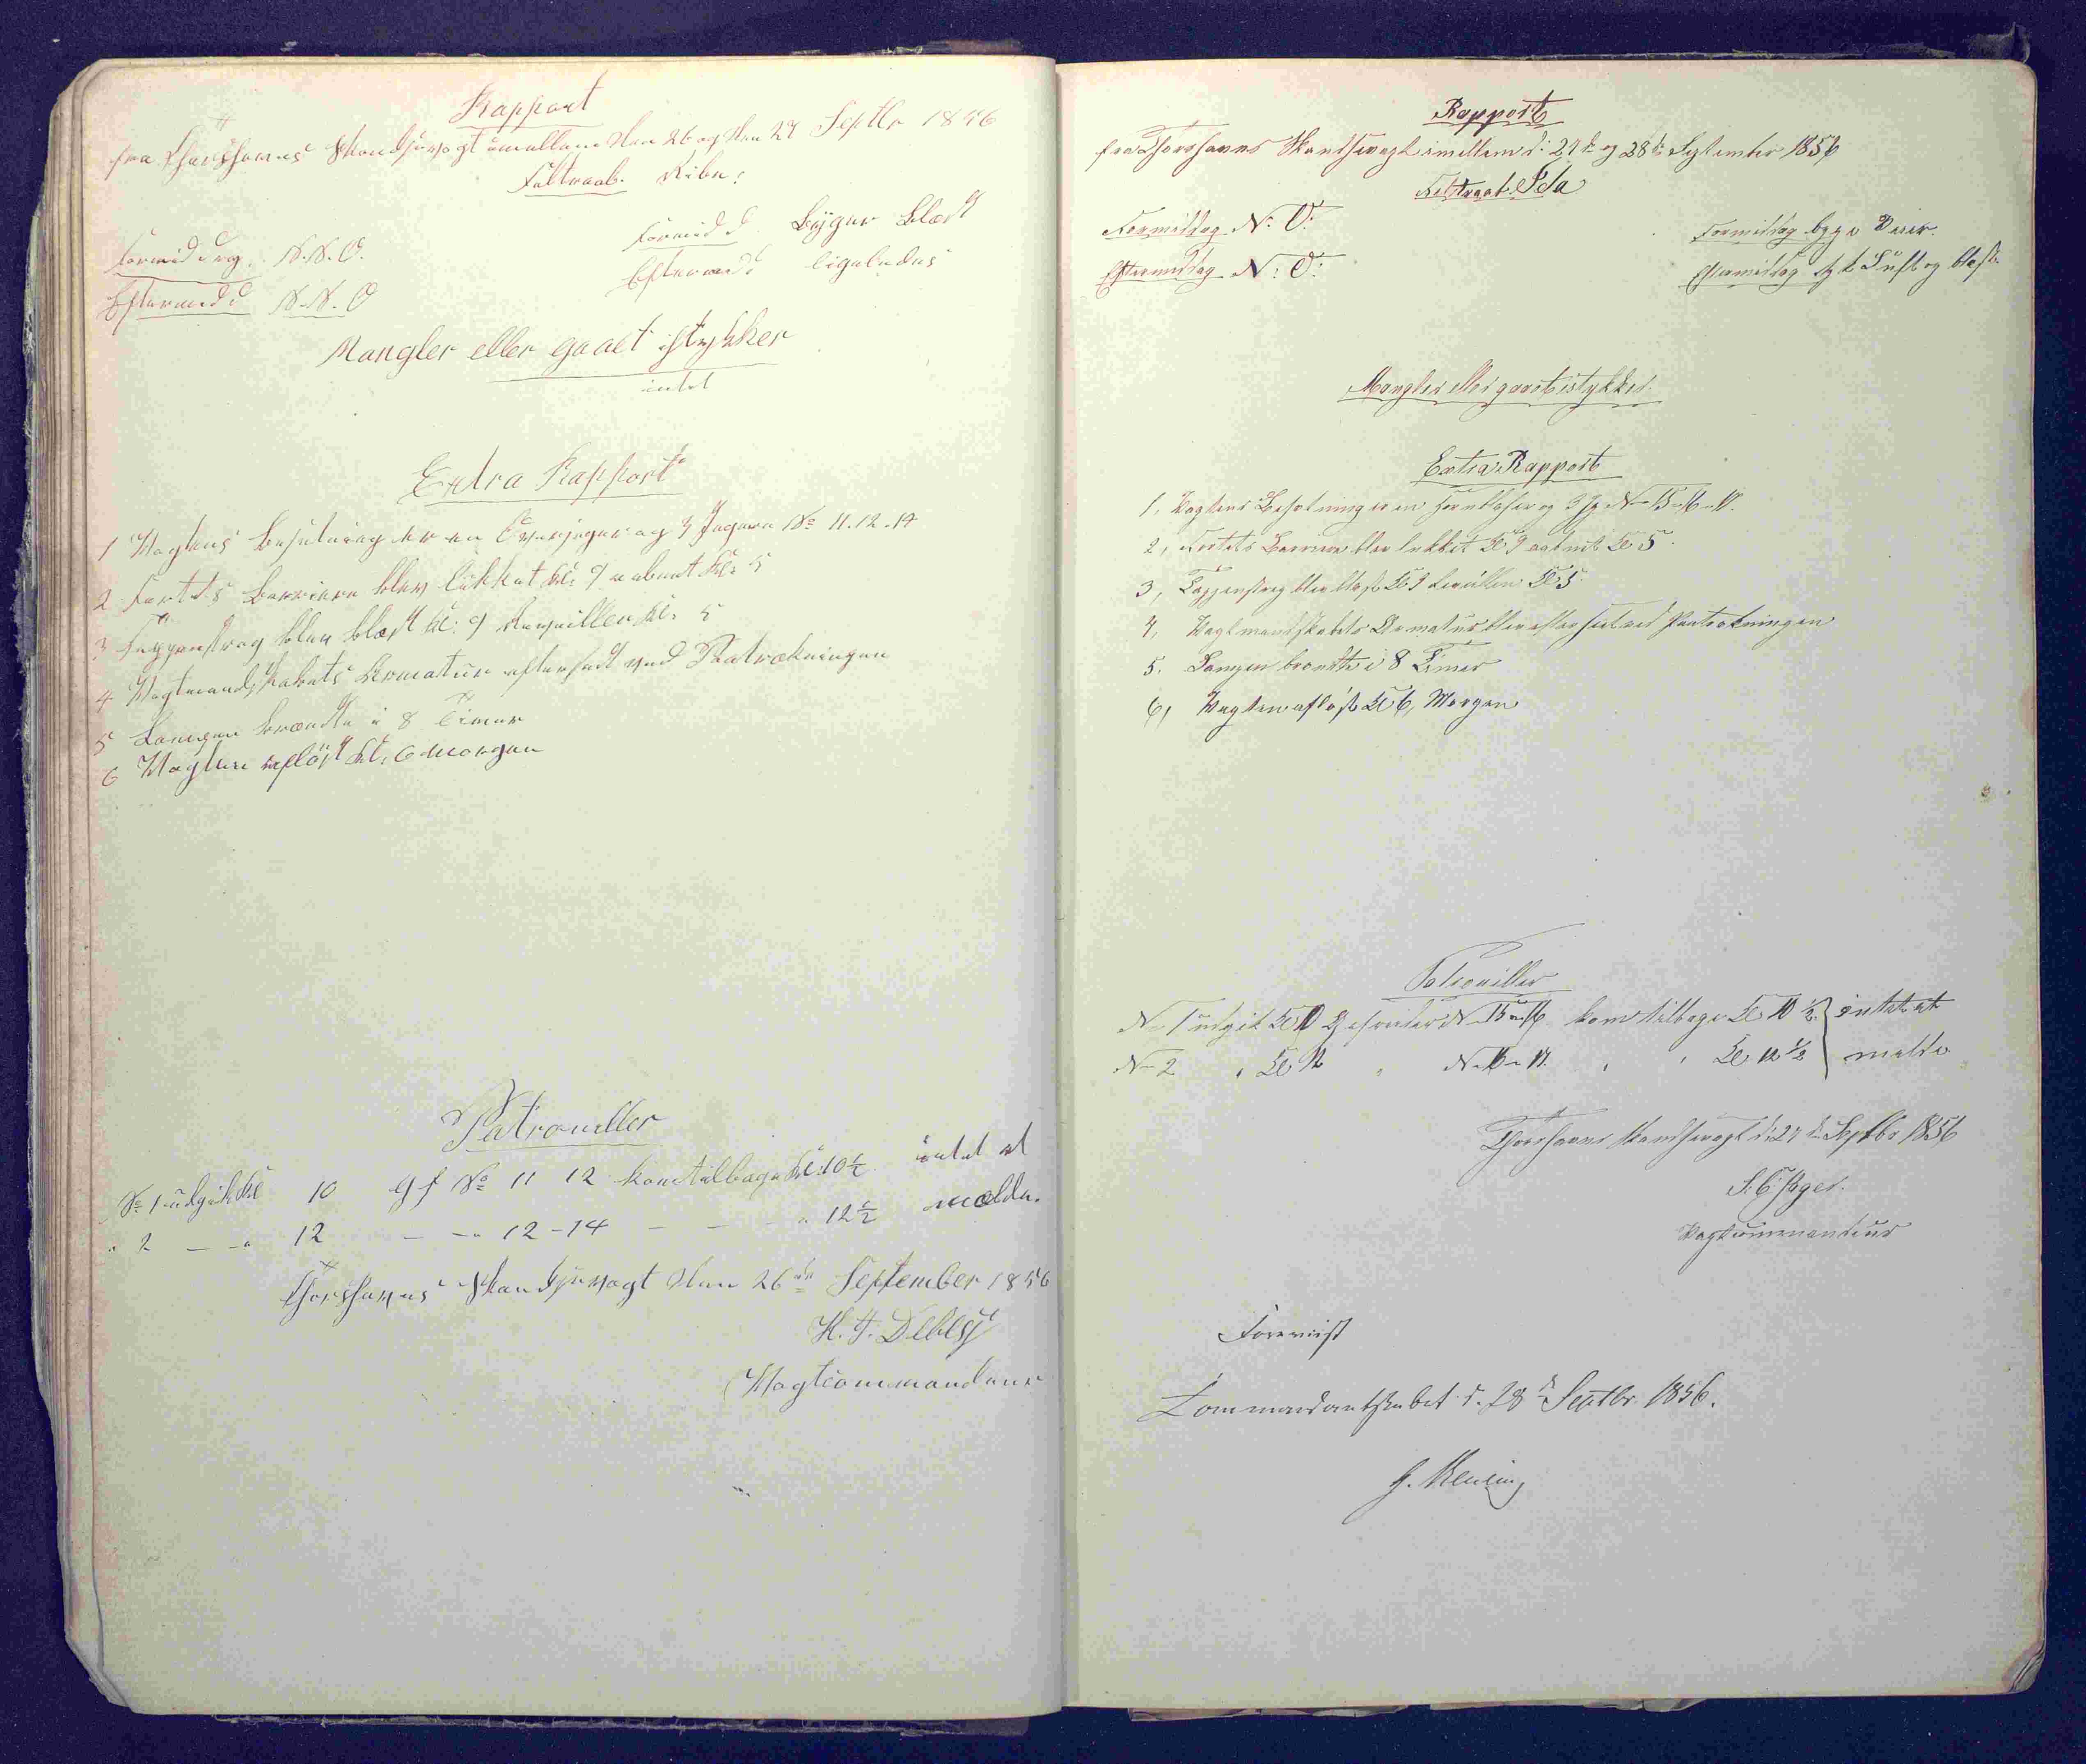 Rapport
fra Thorshavns Skandsevagt imellem den 26 og den 27 Septbr 1856
Feltraab. Ribe.
Formiddag. N.N.O.
Eftermidd N.N.O
Formidd. Byger Blæst
Eftermidd ligeledes
Mangler eller gaaet istykker
intet
Extra Rapport
1 Vagtens Besætning er en Overjæger og 3 Jægere No 11.12.14
2 Fortets Barriere blev lukket Kl: 9 aabnet Kl: 5
3 Tappenstrag blev blæst Kl: 9 Reveillen Kl: 5
4 Vagtmandskabets Armatur efterseet ved Paatrækningen
5 Lampen brændte i 8 Timer
6 Vagten afløst Kl: 6 Morgen
Patrouiller
No 1 udgik Kl 10 Gf No 11 12 kom tilbage Kl: 10½ intet at
" 2 — — " 12 — — " 12-14 — — — " 12½ melde.
Thorshavns Skandsevagt den 26de September 1856
H. F. Debes
Vagtcommandeur
Rapport
fra Thorshavns Skandsevagt imellem d: 27de og 28de September 1856
Feltraab Ida
Formiddag N: O:
Eftermiddag N: O:
Formiddag byge Veir.
Eftermiddag tyk Luft og blæst
Mangler eller gaaet istykker.
Extra Rapport
1, Vagtens Besætning er en Hornblæser og 3 Jg N 15-16-17.
2, Fortets Barriere blev lukket Kl 9 aabnet Kl 5.
3, Tappenstreg blev blæst Kl 9 Revellien Kl 5
4, Vagtmandskabets Armatur blev efterseet ved Paatrækningen
5. Lampen brændte i 8 Timer
6, Vagten afløst Kl 6, Morgen
Patrouiller
N 1 udgik Kl 10 Gefreider N 15 - 16 kom tilbage Kl 10½ intet at
N 2 " Kl 12 " N. 16 - 17. " " Kl 12½ melde
Thorshavns Skandsevagt d: 27de Septbr 1856
Vagtcommandeur
Foreviist
Commandantskabet d. 28de Septbr 1856.